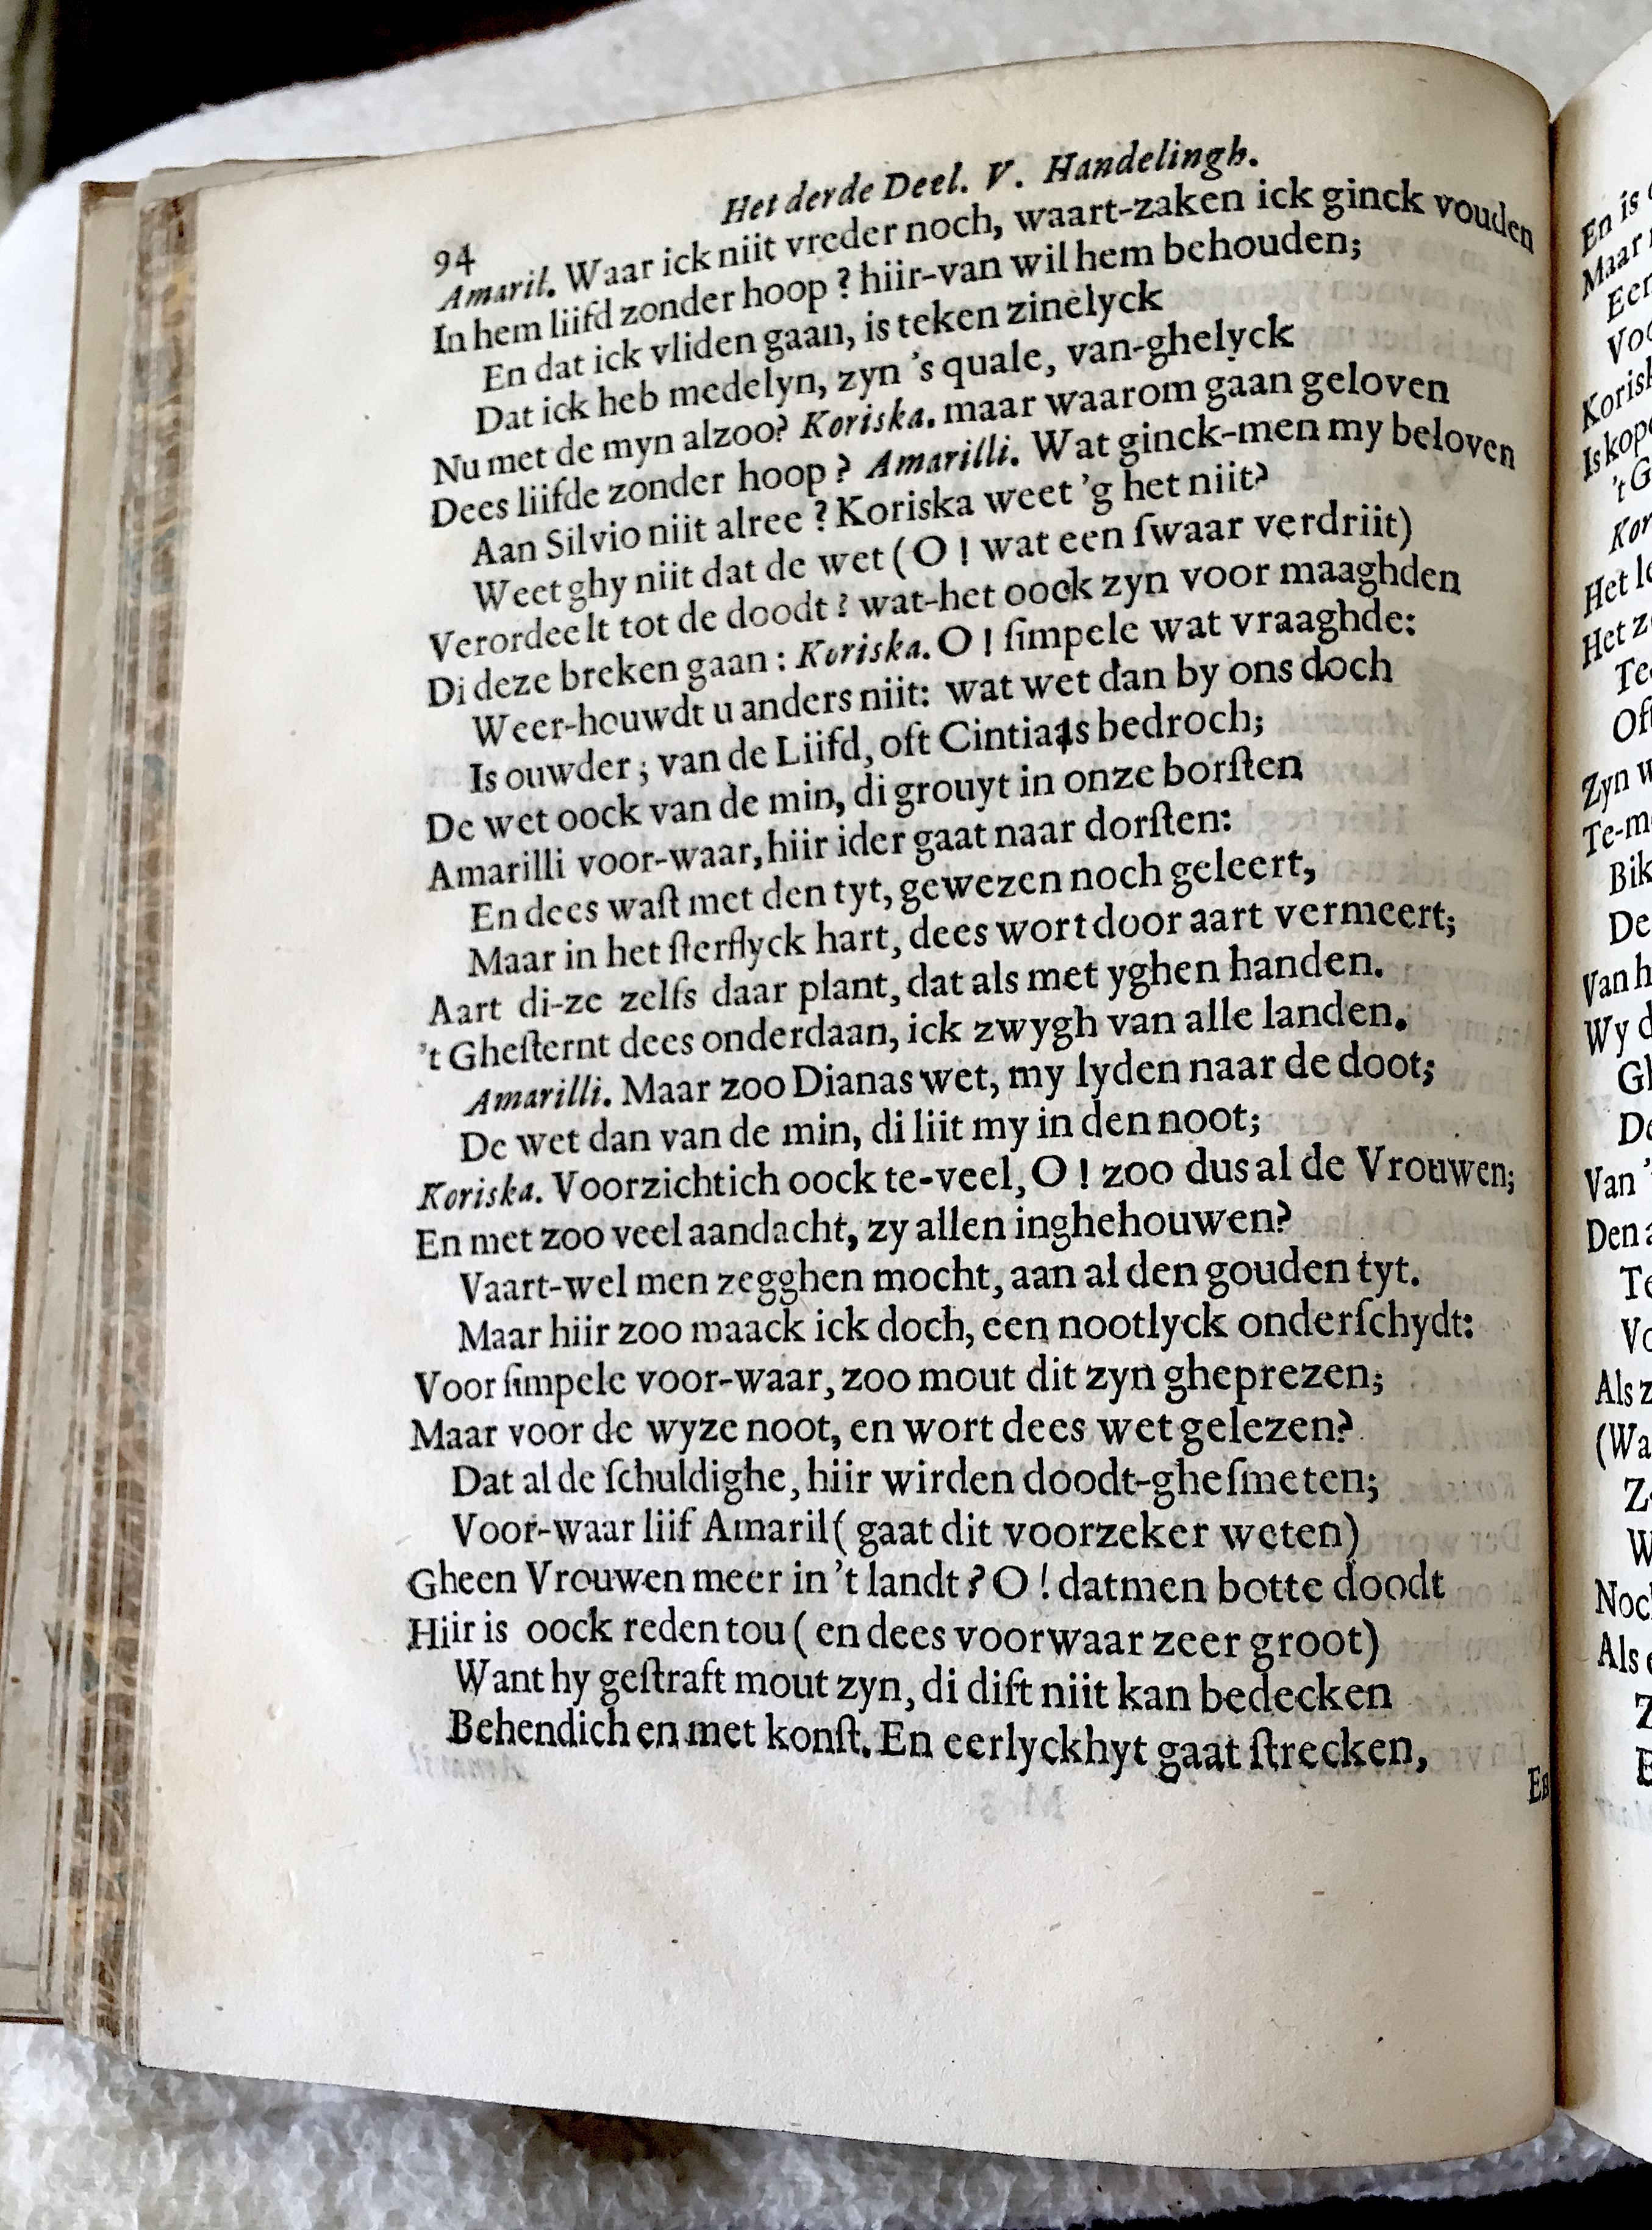 94
Het derde Deel. V. Handelingh.
Amaril. Waar ick niit vreder noch, waart-zaken ick ginck vouden
In hem liifd zonder hoop ? hiir-van wil hem behouden;
En dat ick vliden gaan, is teken zinelyck
Dat ick heb medelyn, zyn 's quale, van-ghelyck
Nu met de myn alzoo? Koriska. maar waarom gaan geloven
Dees liifde zonder hoop ? Amarilli. Wat ginck-men my beloven
Aan Silvio niit alree ? Koriska weet 'g het niit?
Weet ghy niit dat de wet ( O ! wat een ſwaar verdriit)
Verordeelt tot de doodt ? wat-het oock zyn voor maaghden
Di deze breken gaan : Koriska. O ! ſimpele wat vraaghde:
Weer-houwdt u anders niit: wat wet dan by ons doch
Is ouwder ; van de Liifd, oft Cintiaas bedroch;
De wet oock van de min, di grouyt in onze borſten
Amarilli voor-waar, hiir ider gaat naar dorſten:
En dees waſt met den tyt, gewezen noch geleert,
Maar in het ſterflyck hart, dees wort door aart vermeert;
Aart di-ze zelfs daar plant, dat als met yghen handen.
't Gheſternt dees onderdaan, ick zwygh van alle landen.
Amarilli. Maar zoo Dianas wet, my lyden naar de doot;
De wet dan van de min, di liit my in den noot;
Koriska. Voorzichtich oock te-veel, O ! zoo dus al de Vrouwen;
En met zoo veel aandacht, zy allen inghehouwen?
Vaart-wel men zegghen mocht, aan al den gouden tyt.
Maar hiir zoo maack ick doch, een nootlyck onderſchydt:
Voor ſimpele voor-waar, zoo mout dit zyn gheprezen;
Maar voor de wyze noot, en wort dees wet gelezen?
Dat al de ſchuldighe, hiir wirden doodt-gheſmeten;
Voor-waar liif Amaril ( gaat dit voorzeker weten)
Gheen Vrouwen meer in 't landt ? O ! datmen botte doodt
Hiir is oock reden tou ( en dees voorwaar zeer groot)
Want hy geſtraft mout zyn, di dift niit kan bedecken
Behendich en met konſt. En eerlyckhyt gaat ſtrecken,
En is
Maar
Voo
Korisk
Is kope
't G
Kor
Het le
Het z
Te
Oft
Zyn w
Te-m
Bik
De
Van h
Wy d
Gh
De
Van '
Den a
Te
Vo
Als z
(Wa
Z
W
Noc
Als
Z
E